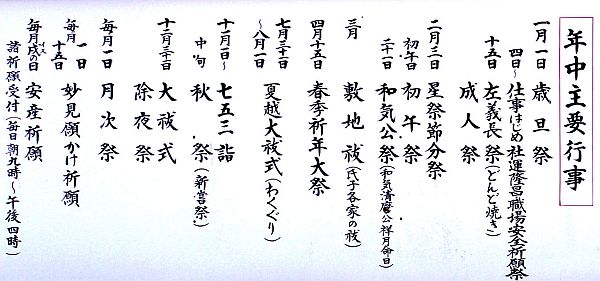 年中主要行事
一月一日 歳旦祭
四日〜 仕事はじめ社運隆昌職場安全祈願祭
十五日 左義長祭(どんど焼き)
成人祭
二月三日 星祭節分祭
初午日 初午祭
二十一日 和気公祭(和気清麿公祥月命日)
三月 敷地祓(氏子各家の祓)
四月十五日 春季祈年大祭
七月三十一日〜八月一日 夏越大祓式(わくぐり)
十一月一日〜 七五三詣
中旬 秋祭(新嘗祭)
十二月三十一日 大祓式
除夜祭
毎月一日 月次祭
毎月一日十五日 妙見願かけ祈願
毎月戌の日 安産祈願
諸祈願受付(毎日朝九時〜午後四時)